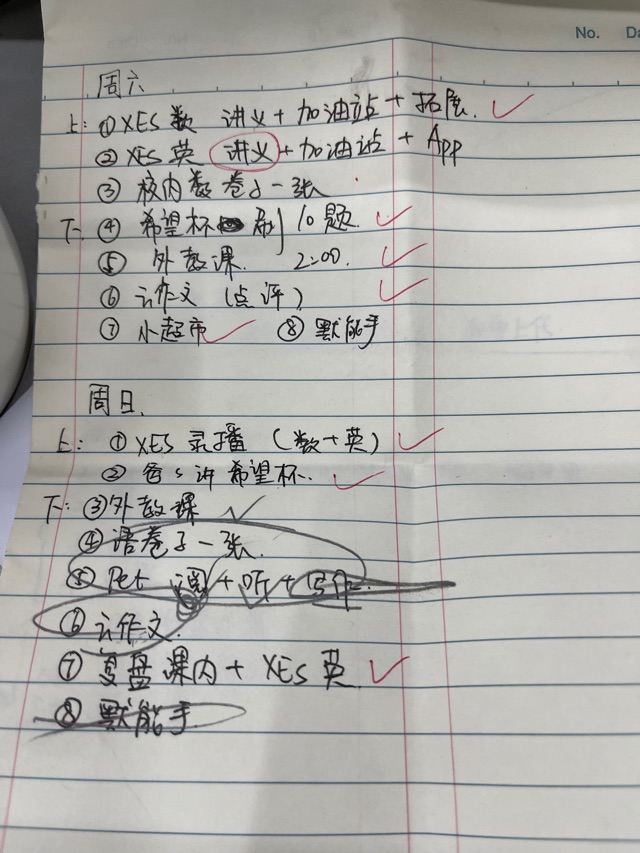 No. Da
周六
上: ① XES 数 讲义 + 加油站 + 拓展.
② XES 英 讲义 + 加油站 + App
③ 校内数卷子一张
下: ④ 希望杯 刷 10 题.
⑤ 外教课. 2:00.
⑥ 云作文 (点评)
⑦ 小超市 ⑧ 默能手
周日.
上: ① XES 录播 (数+英)
② 爸爸讲希望杯.
下: ③ 外教课
④ 语卷子一张.
⑤ Pet 阅 + 听 + 写作.
⑥ 云作文.
⑦ 复盘课内 + XES 英.
⑧ 默能手